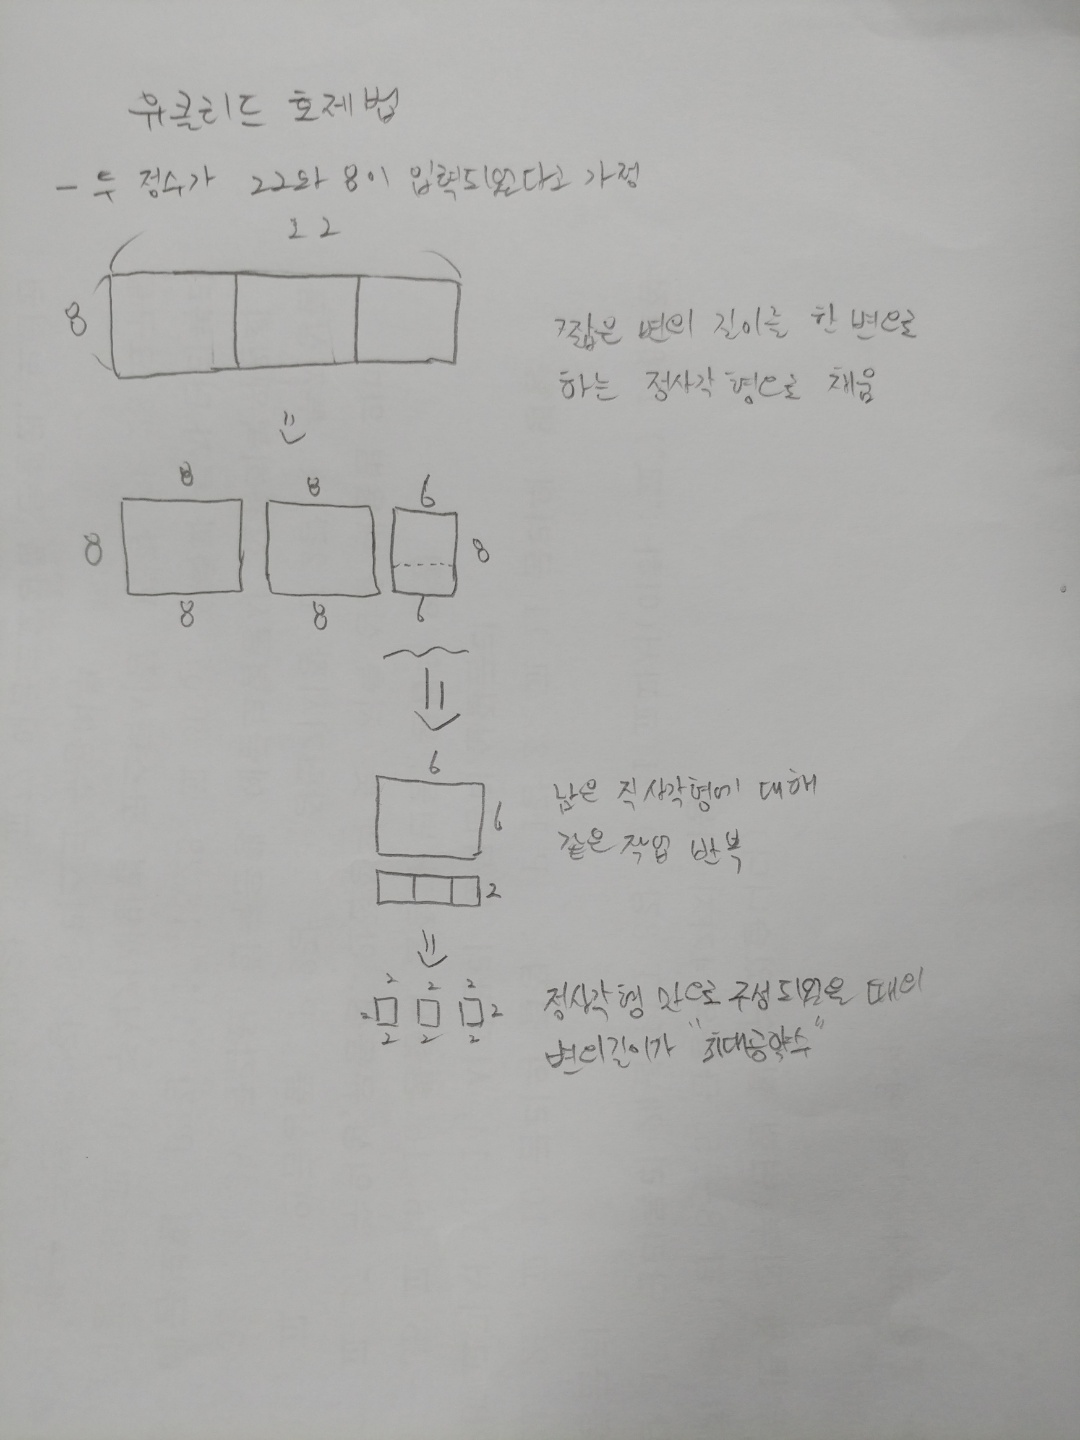 유클리드 호제법
- 두 정수가 22와 8이 입력되었다고 가정
22
8
짧은 변의 길이를 한 변으로
하는 정사각형으로 채움
8 8 6
8 8
8 8 6
6
6
남은 직사각형에 대해
같은 작업 반복
2
2 2 2
2 2
2 2 2
정사각형 만으로 구성되었을 때의
변의길이가 "최대공약수"